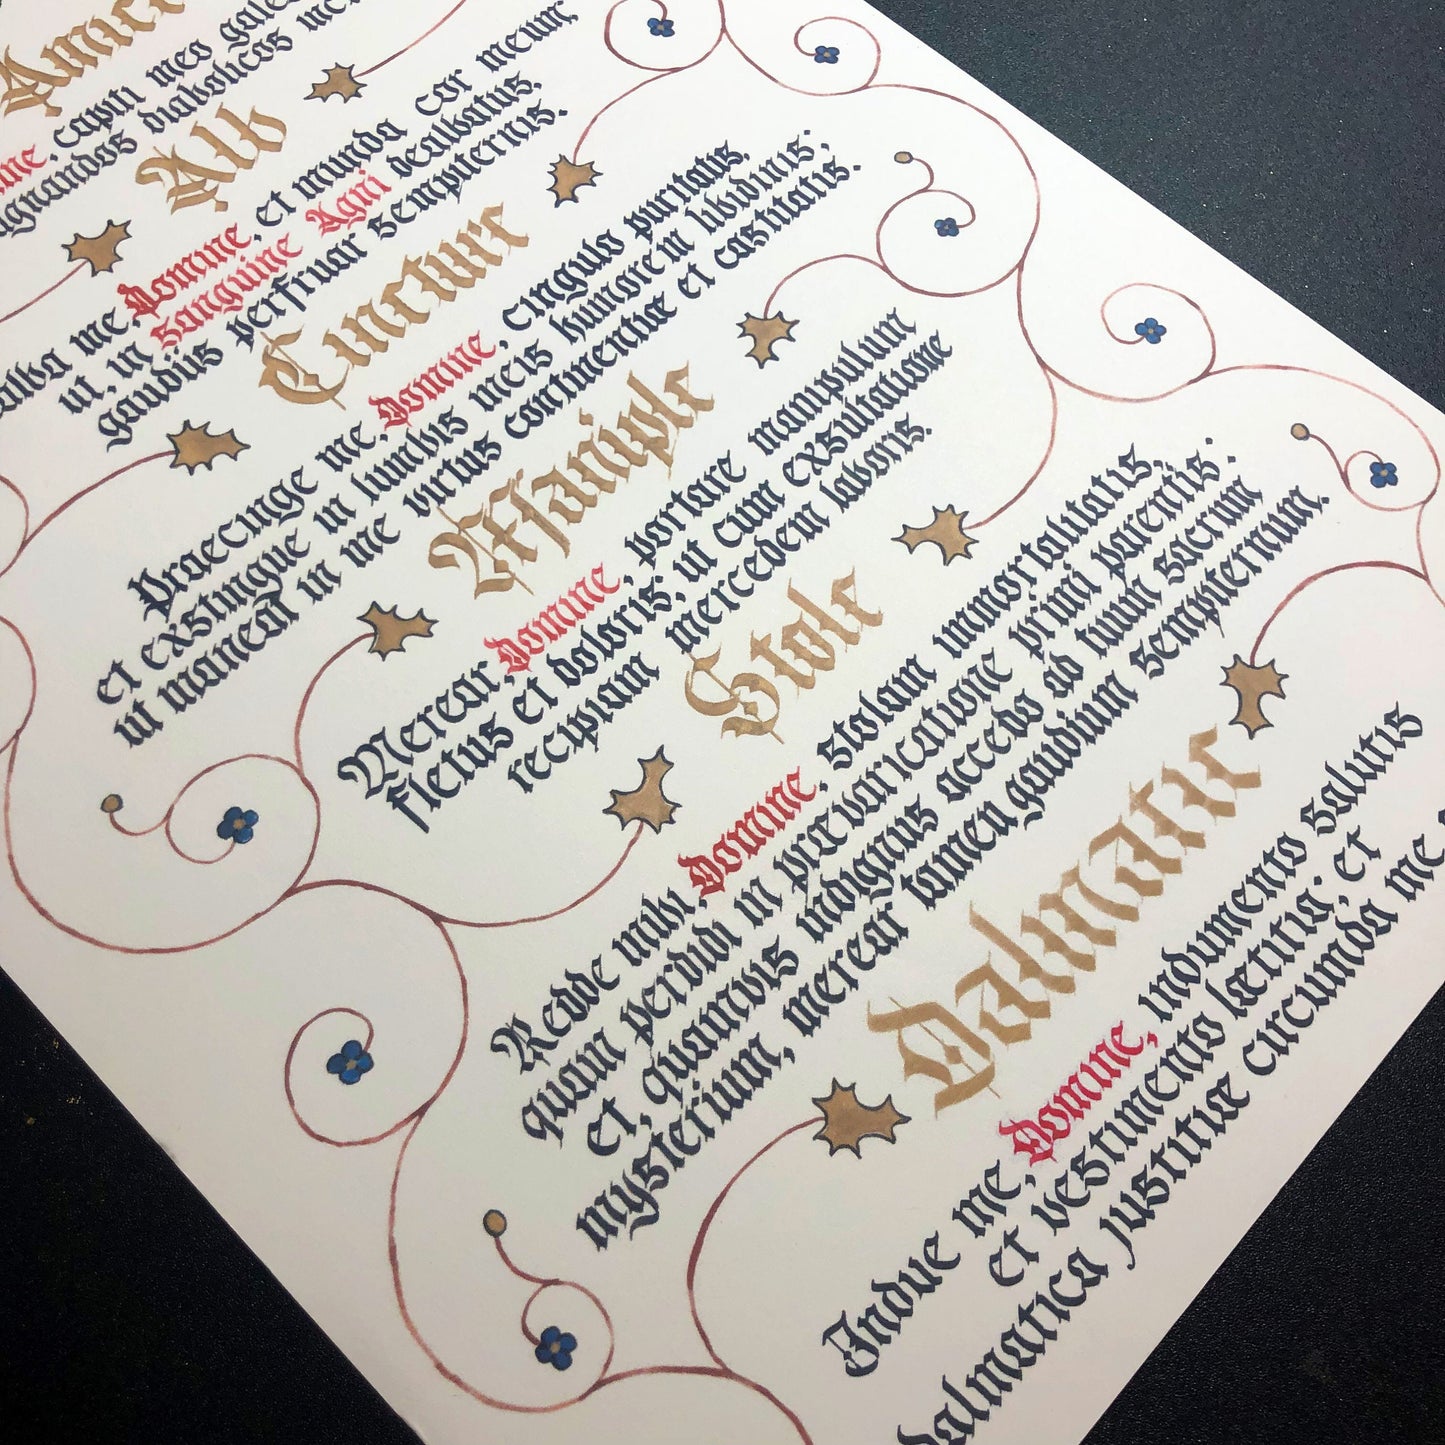 Amice
ine, capiti meo galea
ignandos diabolicos inc
Alb
alba me, Domine, et munda cor meum;
ut, in sanguine Agni dealbatus,
gaudiis perfruar sempiternis.
Cincture
Praecinge me, Domine, cingulo puritatis,
et exstingue in lumbis meis humorem libidinis;
ut maneat in me virtus continentiæ et castitatis.
Maniple
Merear, Domine, portare manipulum
fletus et doloris; ut cum exsultatione
recipiam mercedem laboris.
Stole
Redde mihi, Domine, stolam immortalitatis,
quam perdidi in prævaricatione primi parentis:
et, quamvis indignus accedo ad tuum sacrum
mysterium, merear tamen gaudium sempiternum.
Dalmatic
Indue me, Domine, indumento salutis
et vestimento lætitiæ; et
dalmatica justitiæ circumda me